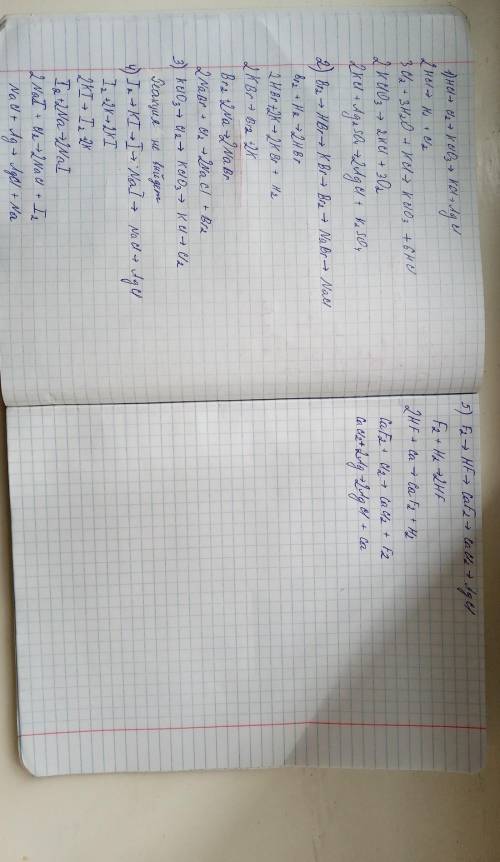 1) HCl → Cl2 → KClO3 → KCl → AgCl
2HCl → H2 + Cl2
3Cl2 + 3H2O + KCl → KClO3 + 6HCl
2KClO3 → 2KCl + 3O2
2KCl + Ag2SO4 → 2AgCl + K2SO4
2) Br2 → HBr → KBr → Br2 → NaBr → NaCl
Br2 + H2 → 2HBr
2HBr + 2K → 2KBr + H2
2KBr → Br2 + 2K
Br2 + 2Na → 2NaBr
2NaBr + Cl2 → 2NaCl + Br2
3) KClO3 → Cl2 → KClO3 → KCl → Cl2
Реакция не выйдет
4) I2 → KI → I → NaI → NaCl → AgCl
I2 + 2K → 2KI
2KI → I2 + 2K
I2 + 2Na → 2NaI
2NaI + Cl2 → 2NaCl + I2
NaCl + Ag → AgCl + Na
5) F2 → HF → CaF2 → CaCl2 → AgCl
F2 + H2 → 2HF
2HF + Ca → CaF2 + H2
CaF2 + Cl2 → CaCl2 + F2
CaCl2 + 2Ag → 2AgCl + Ca